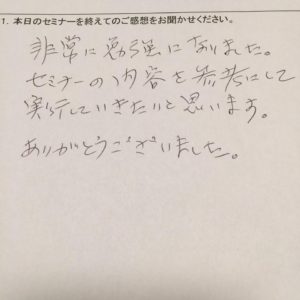 1. 本日のセミナーを終えてのご感想をお聞かせください。
非常に勉強になりました。
セミナーの内容を参考にして
実行していきたいと思います。
ありがとうございました。